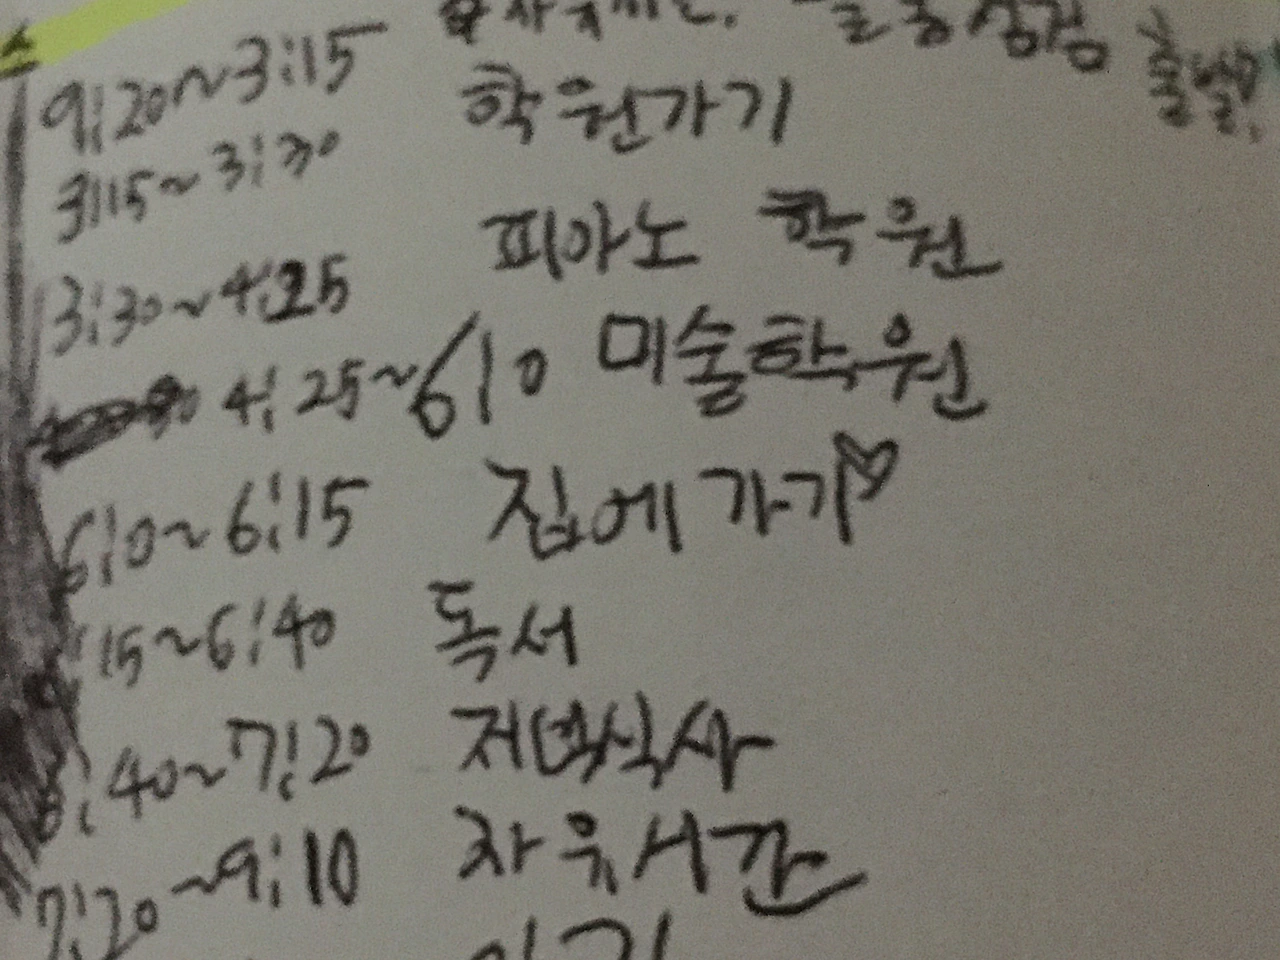 9:20~3:15
3:15~3:30 학원가기
3:30~4:25 피아노 학원
4:25~6:10 미술학원
6:10~6:15 집에 가기♡
:15~6:40 독서
6:40~7:20 저녁식사
7:20~9:10 자유시간